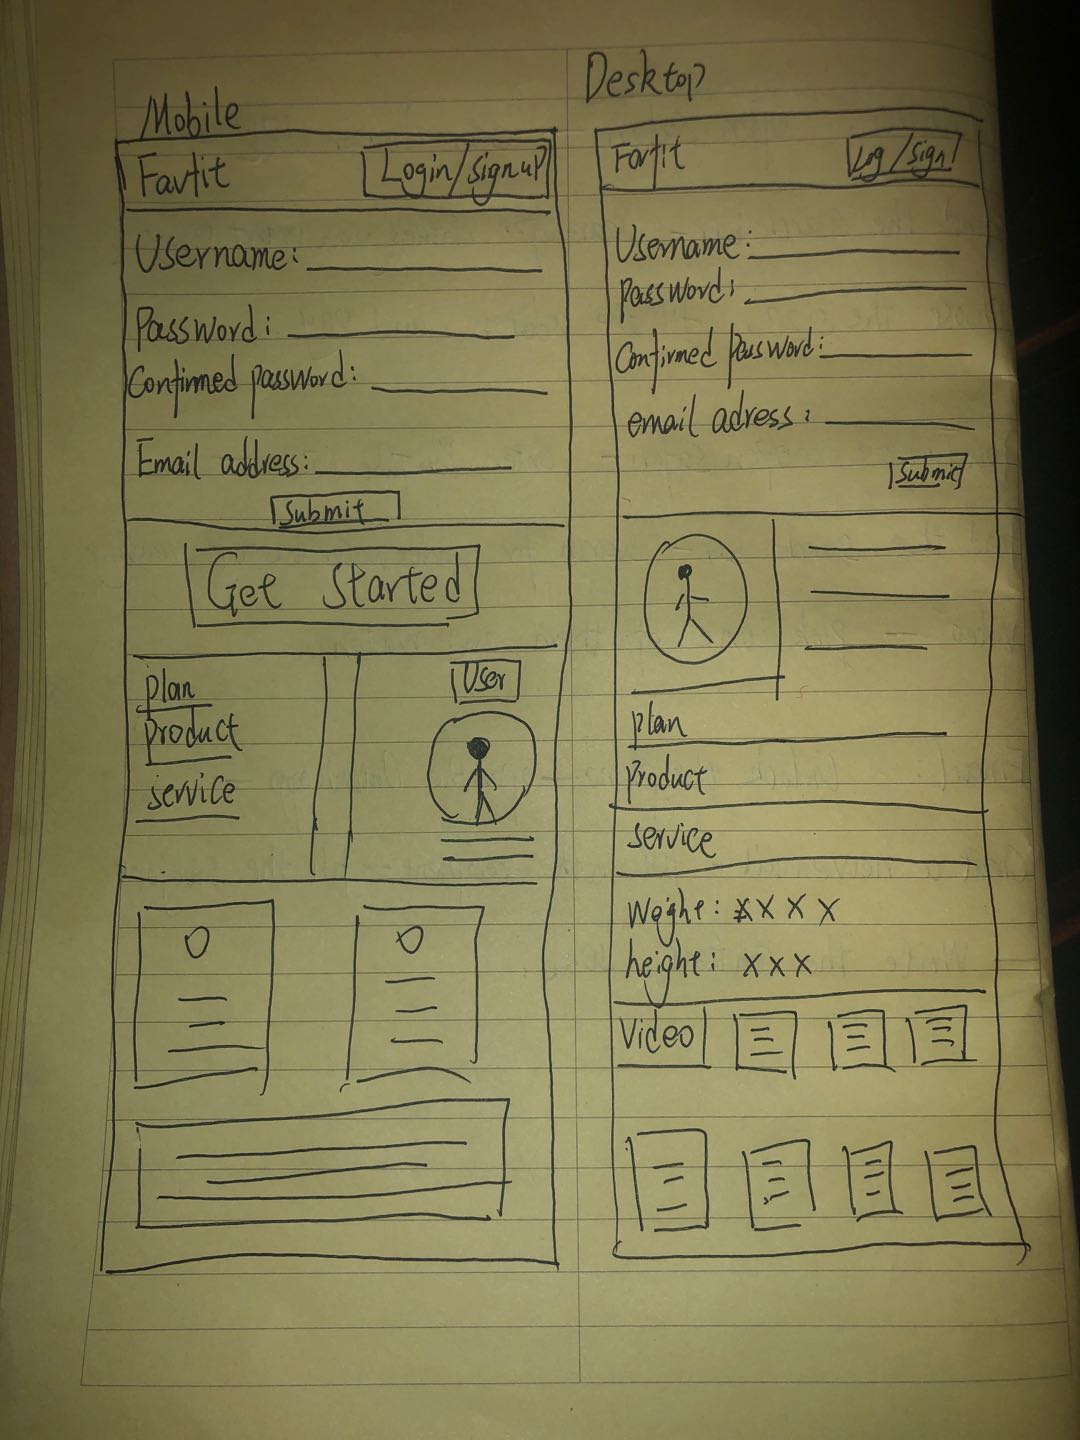 Mobile
Favfit
Login/signup
Username:
Password:
Confirmed password:
Email address:
Submit
Get Started
plan
product
service
User
Desktop
Log/Sign
Username:
password:
Confirmed password:
email adress:
Submit
plan
product
service
height: XXX
Video